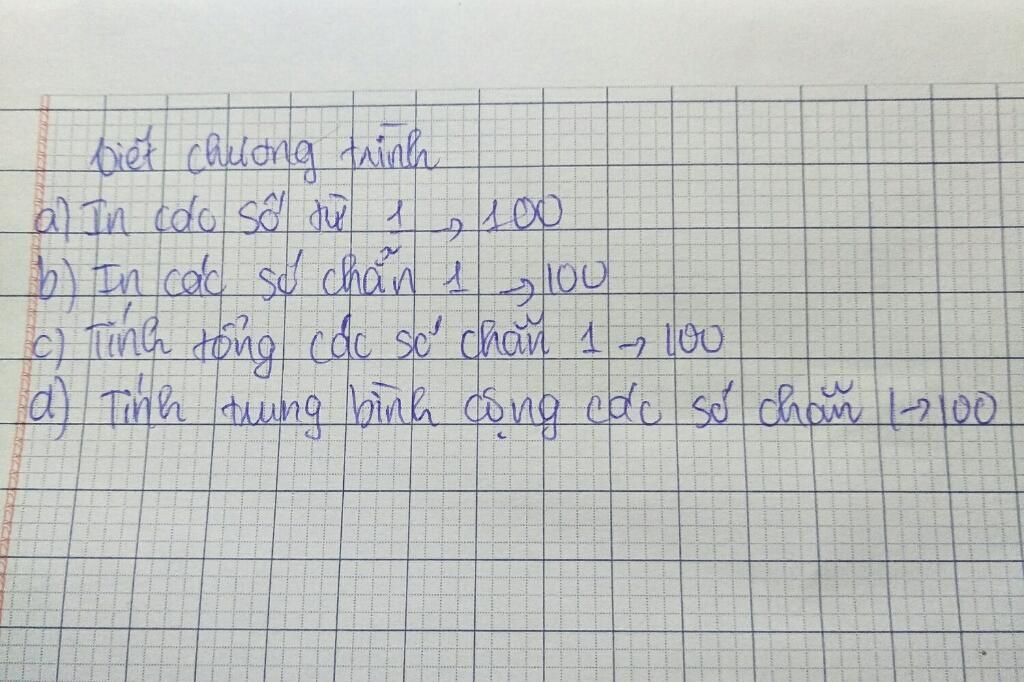 Viết chương trình
a) In các số từ 1 → 100
b) In các số chẵn 1 → 100
c) Tính tổng các số chẵn 1 → 100
d) Tính trung bình cộng các số chẵn 1 → 100